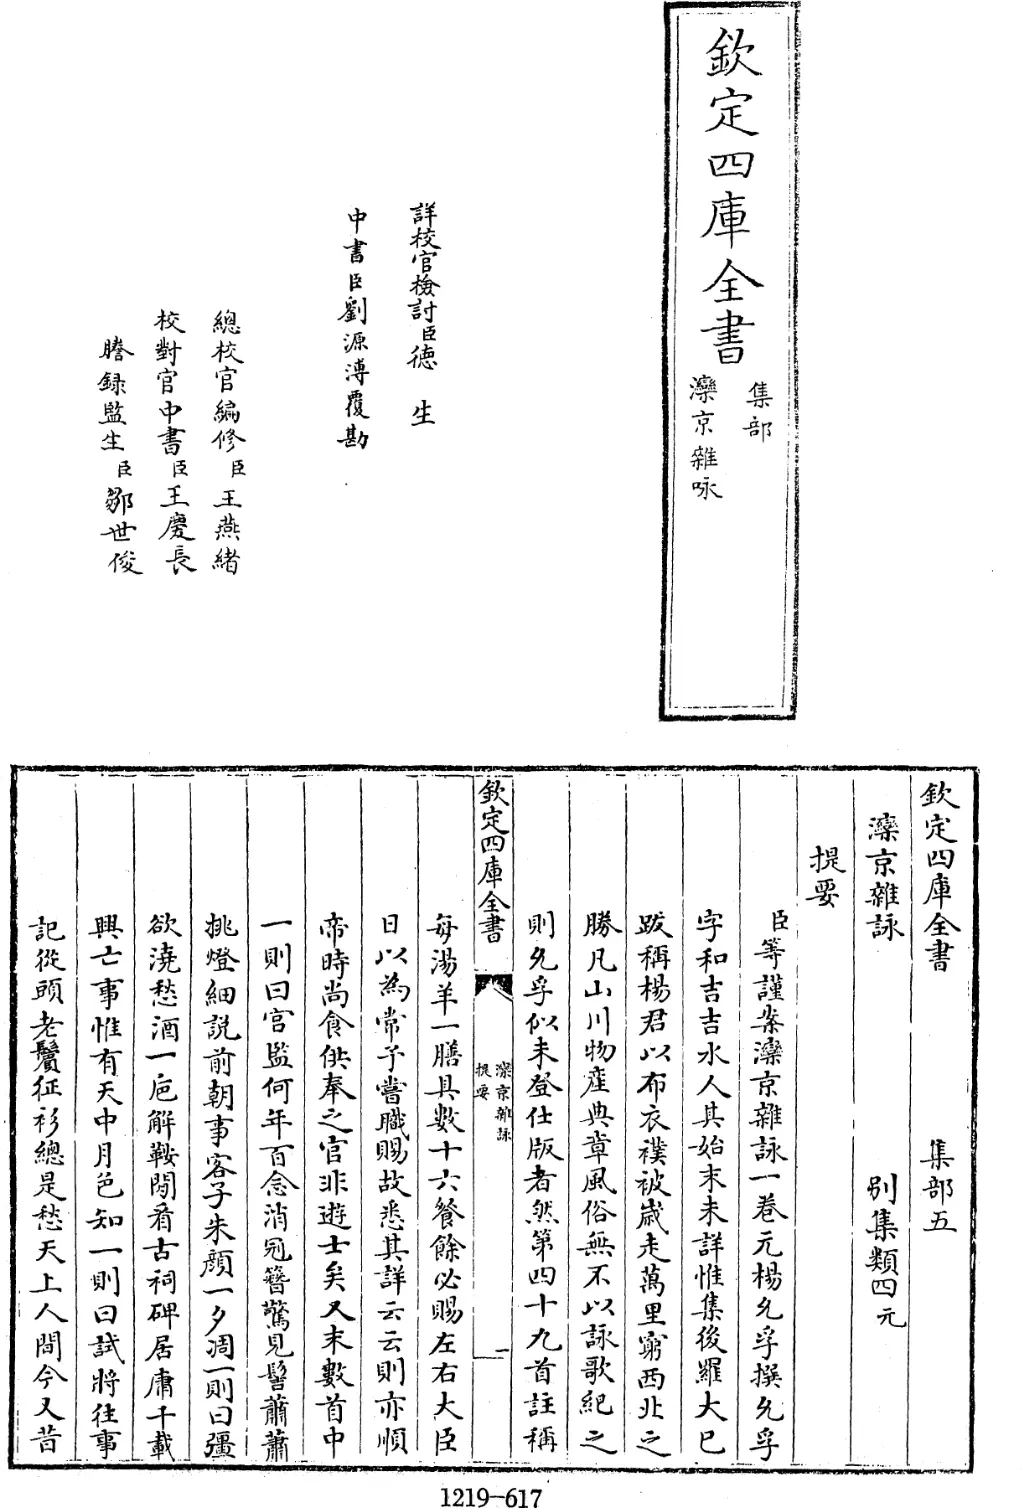 欽定四庫全書
集部
灤京雜咏
詳校官檢討臣德生
中書臣劉源溥覆勘
總校官編修臣王燕緒
校對官中書臣王慶長
謄録監生臣鄒世俊
欽定四庫全書 集部五
灤京雜詠 別集類四元
提要
臣等謹案灤京雜詠一卷元楊允孚撰允孚
字和吉吉水人其始末未詳惟集後羅大巳
跋稱楊君以布衣襆被歲走萬里窮西北之
勝凡山川物產典章風俗無不以詠歌紀之
則允孚似未登仕版者然第四十九首註稱
欽定四庫全書
灤京雜詠
提要
一
每湯羊一膳具數十六餐餘必賜左右大臣
日以為常予嘗職賜故悉其詳云云則亦順
帝時尚食供奉之官非遊士矣又末數首中
一則曰宫監何年百念消冠簪驚見髩蕭蕭
挑燈細説前朝事客子朱顔一夕凋一則曰彊
欲澆愁酒一巵解鞍閒看古祠碑居庸千載
興亡事惟有天中月色知一則曰試將往事
記從頭老鬢征衫總是愁天上人間今又昔
1219-617